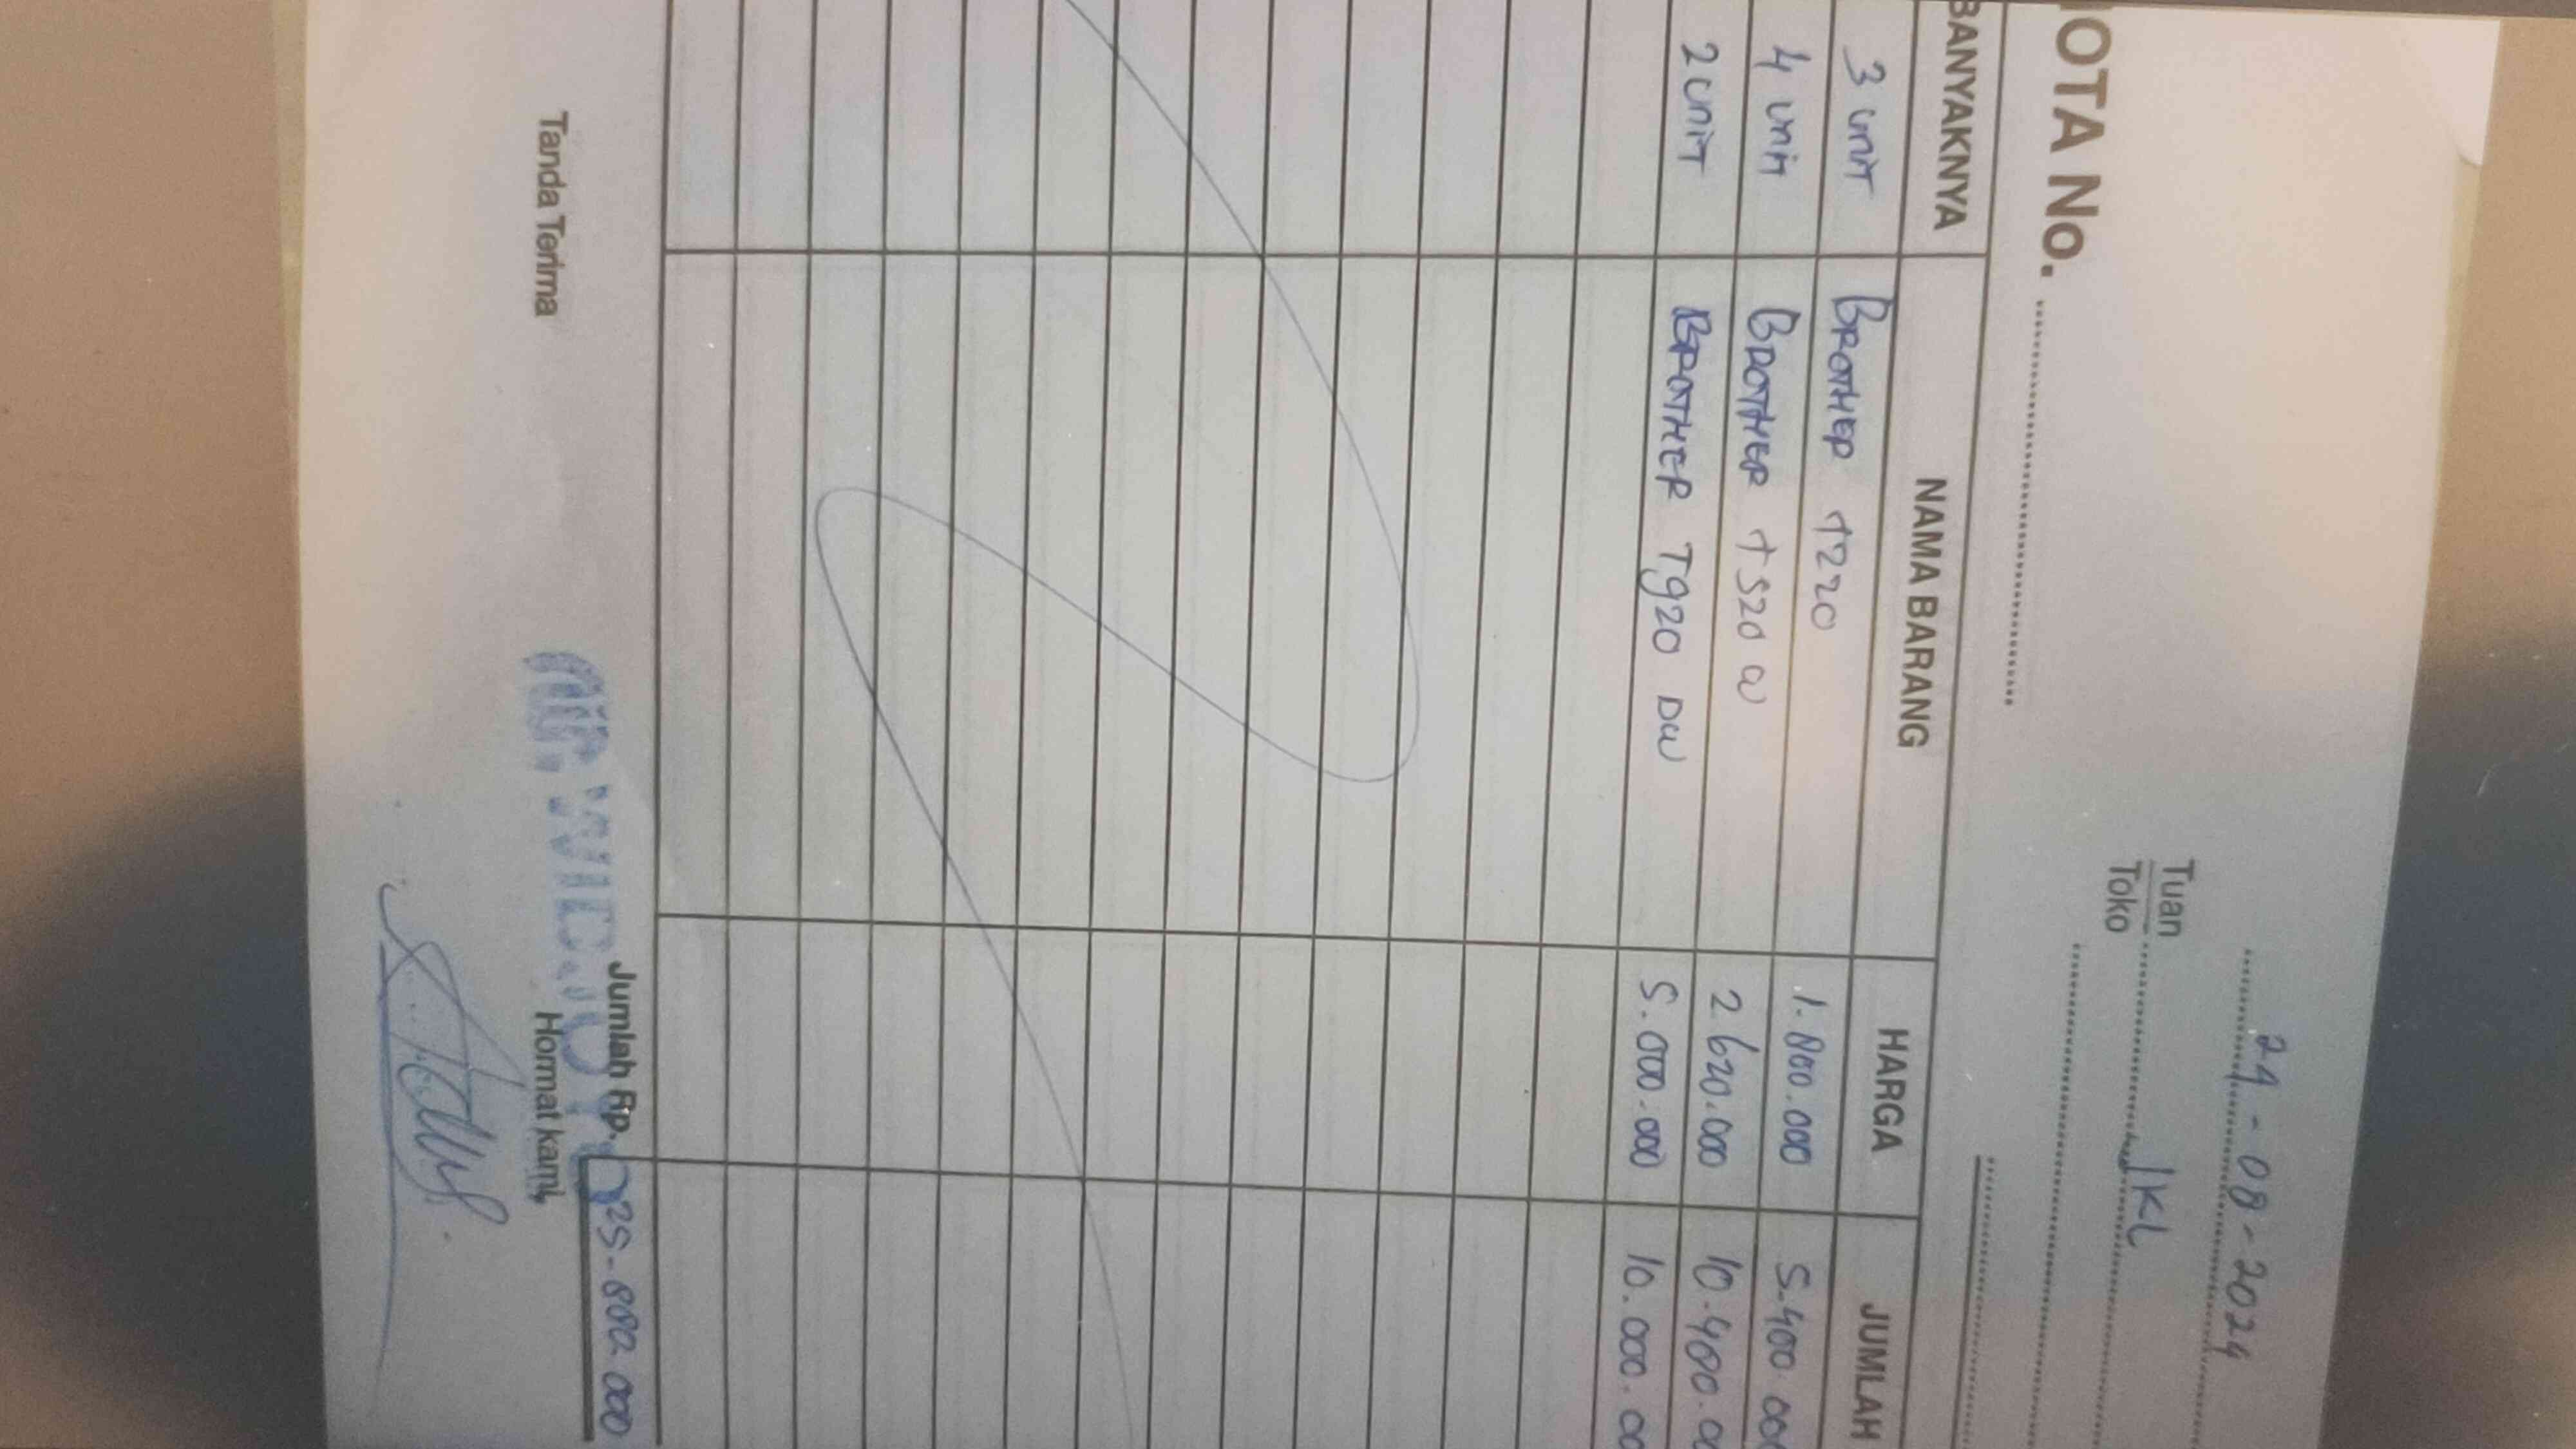 24-08-2024
Tuan
Toko
IKL
NOTA No.
BANYAKNYA NAMA BARANG HARGA JUMLAH
3 unit BROTHER T220 1.800.000 5.400.000
4 unit BROTHER T520 W 2.620.000 10.480.00
2 unit BROTHER T920 DW 5.000.000 10.000.00
Jumlah Rp. 25.882.000
Tanda Terima Hormat kami,